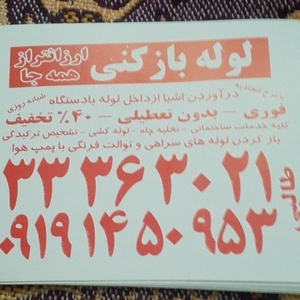 لوله بازکنی
ارزانتر از همه جا
با نرخ اتحادیه
درآوردن اشیا از داخل لوله بادستگاه
شبانه روزی
فوری - بدون تعطیلی - ۴۰٪ تخفیف
کلیه خدمات ساختمانی - تخلیه چاه - لوله کشی - تشخیص ترکیدگی
باز کردن لوله های سراهی و توالت فرنگی با پمپ هوا
۳۳ ۳۶ ۳۰ ۲۱
۰۹۱۹ ۱۴ ۵۰ ۹۵۳